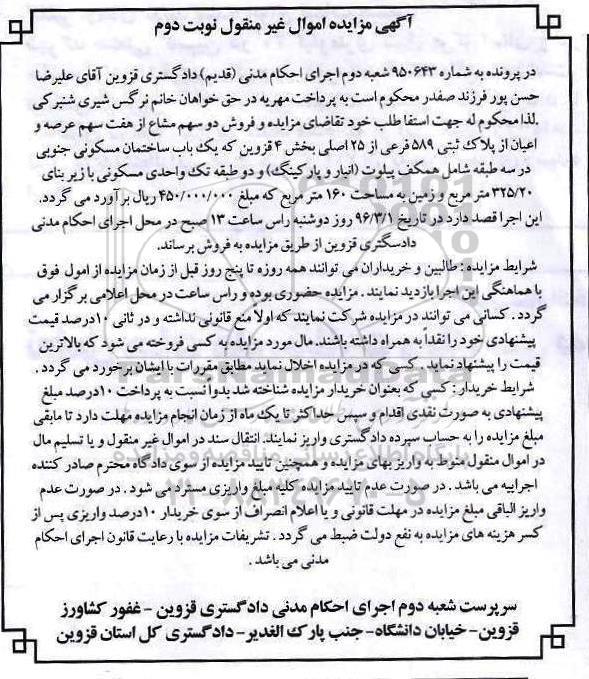 آگهی مزایده اموال غیر منقول نوبت دوم
در پرونده به شماره ۹۵۰۶۴۳ شعبه دوم اجرای احکام مدنی (قدیم) دادگستری قزوین آقای علیرضا
حسن پور فرزند صفدر محکوم است به پرداخت مهریه در حق خواهان خانم نرگس شیری شنبرکی
.لذا محکوم له جهت استفا طلب خود تقاضای مزایده و فروش دو سهم مشاع از هفت سهم عرصه و
اعیان از پلاک ثبتی ۵۸۹ فرعی از ۲۵ اصلی بخش ۴ قزوین که یک باب ساختمان مسکونی جنوبی
در سه طبقه شامل همکف پیلوت (انبار و پارکینگ) و دو طبقه تک واحدی مسکونی با زیر بنای
۳۲۵/۲۰ متر مربع و زمین به مساحت ۱۶۰ متر مربع که مبلغ ۴۵۰/۰۰۰/۰۰۰ ریال برآورد می گردد.
این اجرا قصد دارد در تاریخ ۹۶/۳/۱ روز دوشنبه راس ساعت ۱۳ صبح در محل اجرای احکام مدنی
دادسگتری قزوین از طریق مزایده به فروش برساند.
شرایط مزایده : طالبین و خریداران می توانند همه روزه تا پنج روز قبل از زمان مزایده از امول فوق
با هماهنگی این اجرا بازدید نمایند . مزایده حضوری بوده و راس ساعت در محل اعلامی برگزار می
گردد . کسانی می توانند در مزایده شرکت نمایند که اولاً منع قانونی نداشته و در ثانی ۱۰درصد قیمت
پیشنهادی خود را نقداً به همراه داشته باشند. مال مورد مزایده به کسی فروخته می شود که بالاترین
قیمت را پیشنهاد نماید . کسی که در مزایده اخلال نماید مطابق مقررات با ایشان برخورد می گردد .
شرایط خریدار : کسی که بعنوان خریدار مزایده شناخته شد بدواً نسبت به پرداخت ۱۰درصد مبلغ
پیشنهادی به صورت نقدی اقدام و سپس حداکثر تا یک ماه از زمان انجام مزایده مهلت دارد تا مابقی
مبلغ مزایده را به حساب سپرده دادگستری واریز نمایند. انتقال سند در اموال غیر منقول و یا تسلیم مال
در اموال منقول منوط به واریز بهای مزایده و همچنین تایید مزایده از سوی دادگاه محترم صادر کننده
اجراییه می باشد . در صورت عدم تایید مزایده کلیه مبلغ واریزی مسترد می شود . در صورت عدم
واریز الباقی مبلغ مزایده در مهلت قانونی و یا اعلام انصراف از سوی خریدار ۱۰درصد واریزی پس از
کسر هزینه های مزایده به نفع دولت ضبط می گردد . تشریفات مزایده با رعایت قانون اجرای احکام
مدنی می باشد .
سرپرست شعبه دوم اجرای احکام مدنی دادگستری قزوین - غفور کشاورز
قزوین- خیابان دانشگاه- جنب پارک الغدیر- دادگستری کل استان قزوین